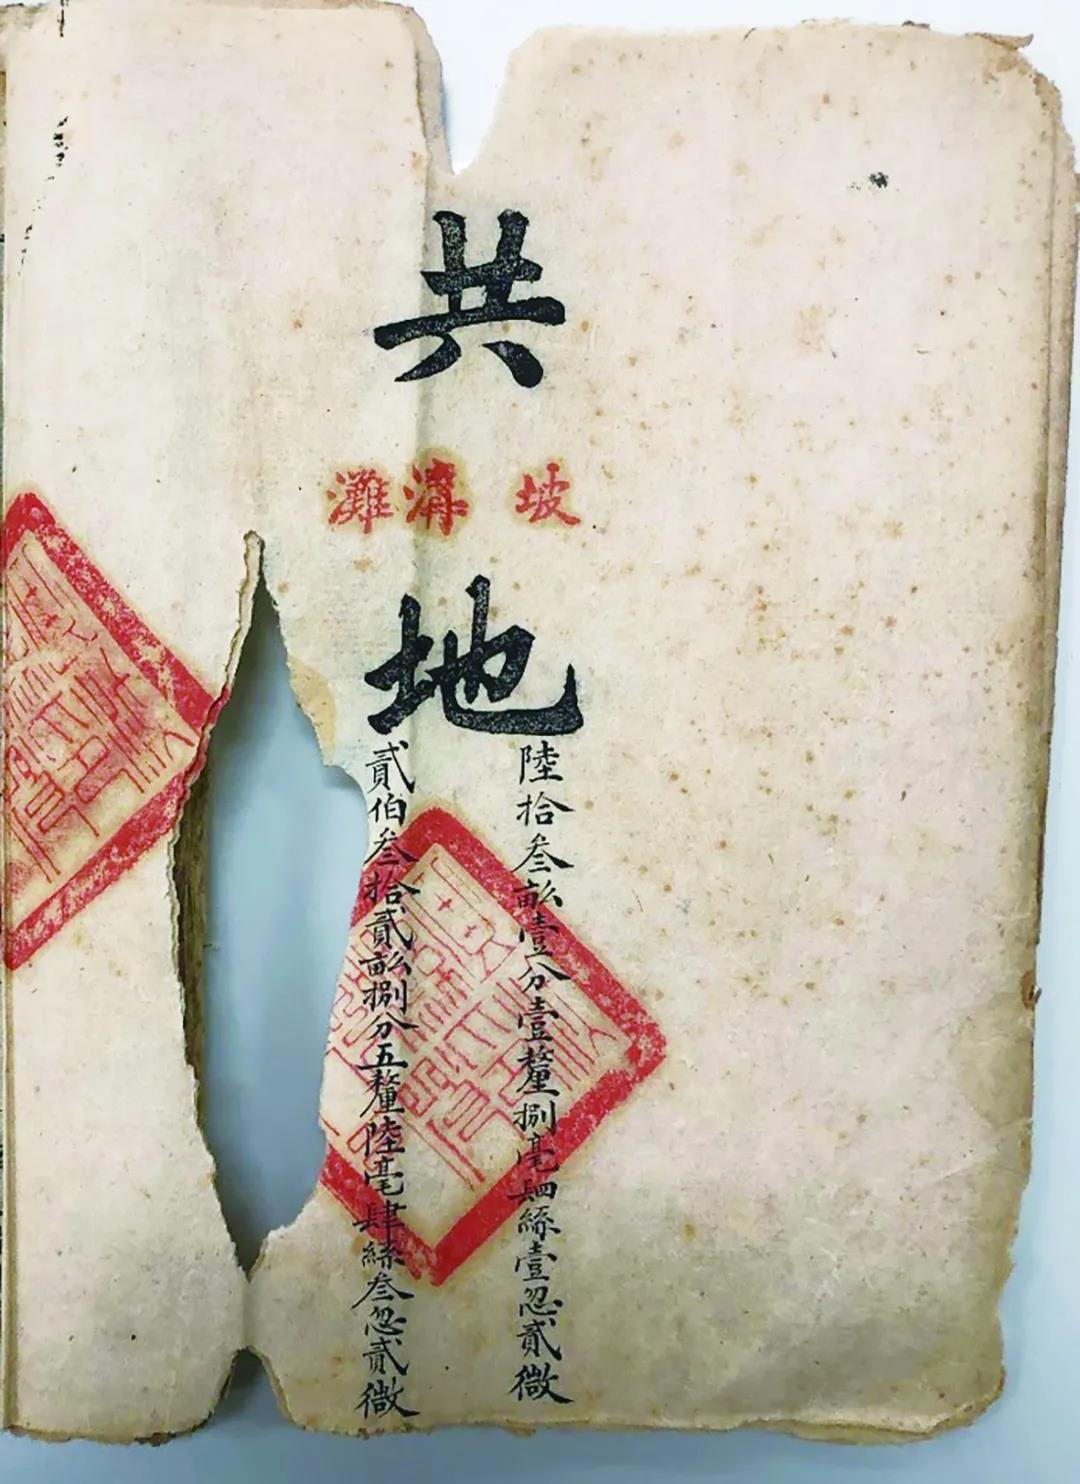 共
坡 溝 灘
地
陸拾叁畝壹分壹釐捌毫肆絲壹忽貳微
貳伯叁拾貳畝捌分五釐陸毫肆絲叁忽貳微